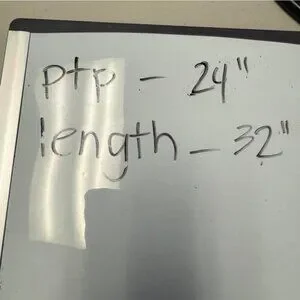 ptp - 24"
length - 32"